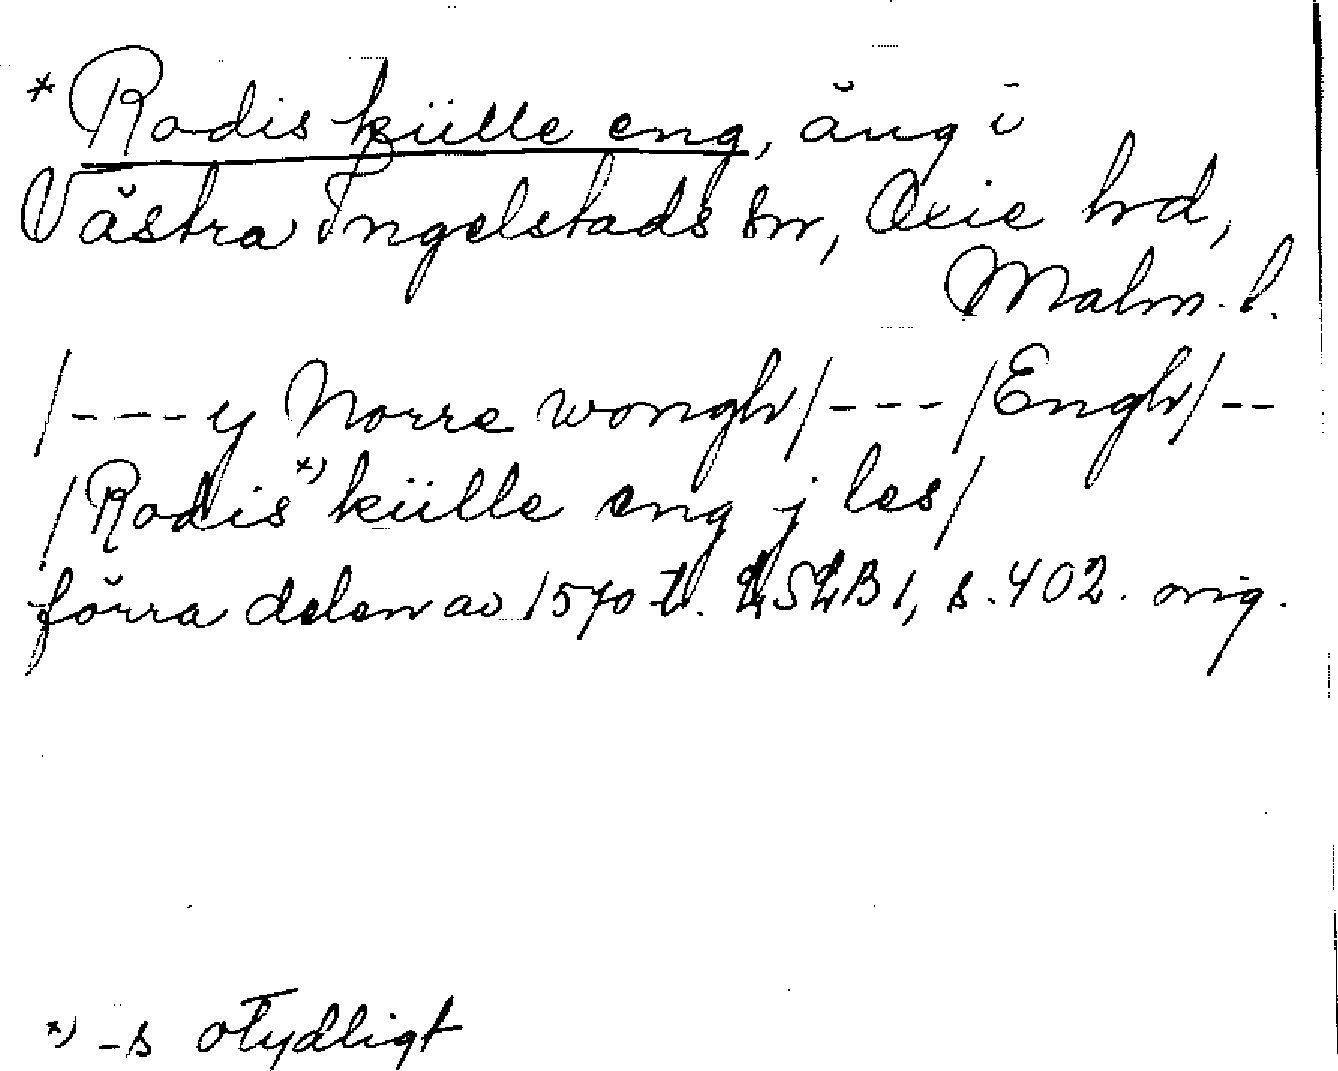 * Rodis külle eng, äng i
Västra Ingelstads sn, Oxie hd,
Malm. l.
/---y Norre wongh/---/Engh/--
/Rodis*) külle eng j les/
förra delen av 1570-t. LSLB 1, s. 402. orig.
*) -s otydligt